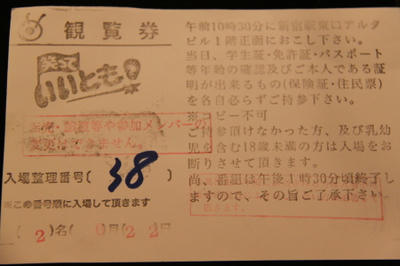 観覧券
笑っていいとも!
転売・譲渡等や参加メンバーの
変更はできません。
入場整理番号( 38
※この番号順に入場して頂きます
(2)名( 月22日
午前10時30分に新宿駅東口アルタ
ビル1階正面におこし下さい。
当日、学生証・免許証・パスポート
等年齢の確認及びご本人である証
明が出来るもの(保険証・住民票)
を各自必らずご持参下さい。
※コピー不可
ご持参頂けなかった方、及び乳幼
児を含む18歳未満の方は入場をお
断りさせて頂きます。
尚、番組は午後1時30分頃終了し
ますので、その旨ご了承下さい。